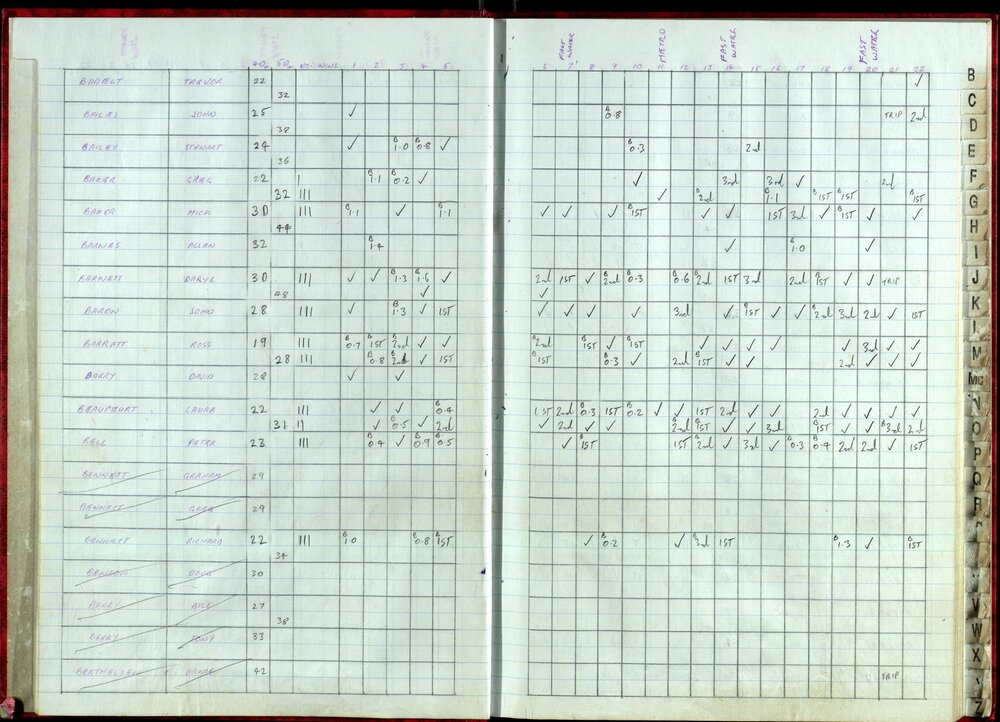 FAST WATER METRO FAST WATER FAST WATER
40s 50s NO. WINS 1 2 3 4 5 6 7 8 9 10 11 12 13 14 15 16 17 18 19 20 21 22
TREVOR 22 ✓
32
JOHN 25 ✓ B 0.8 TRIP 2nd
38
BAILEY STEWART 24 ✓ B 1.0 B 0.8 ✓ B 0.3 2nd
36
BAKER GREG 22 I B 1.1 B 0.2 ✓ ✓ 3rd 3rd ✓ 2nd
32 III ✓ B 2nd B 1.1 B 1ST B 1ST B 1ST
BAKER MICK 30 III B 1.1 ✓ B 1.1 ✓ ✓ ✓ B 1ST ✓ ✓ 1ST 3rd ✓ B 1ST ✓ ✓
44
BARNES ALLAN 32 B 1.4 ✓ B 1.0 ✓
BARNETT DARYL 30 III ✓ ✓ B 1.3 B 1.6 ✓ 2nd 1ST ✓ B 2nd B 0.3 B 0.6 B 2nd 1ST 3rd 2nd B 1ST ✓ ✓ TRIP
48 ✓ ✓
BARON JOHN 28 III ✓ B 1.3 ✓ 1ST ✓ ✓ ✓ ✓ 3rd ✓ B 1ST ✓ ✓ B 2nd 3rd 2nd ✓ 1ST
BARRATT ROSS 19 III B 0.7 B 1ST B 2nd ✓ ✓ B 2nd B 1ST ✓ B 1ST ✓ ✓ ✓ ✓ ✓ 3rd ✓ ✓
28 III B 0.8 B 2nd ✓ 1ST B 1ST B 0.3 ✓ 2nd B 1ST ✓ ✓ 2nd ✓ ✓ ✓
BARRY DAVID 28 ✓ ✓
LAURA 22 III ✓ ✓ B 0.4 1ST 2nd B 0.3 1ST B 0.2 ✓ ✓ 1ST 2nd ✓ ✓ 2nd ✓ ✓ ✓ ✓
31 II ✓ B 0.5 ✓ 2nd ✓ 2nd ✓ ✓ B 2nd B 1ST ✓ ✓ 3rd B 1ST ✓ ✓ B 3rd 2nd
BELL PETER 23 III B 0.4 ✓ B 0.9 B 0.5 ✓ B 1ST 1ST B 2nd ✓ 3rd ✓ B 0.3 B 0.4 2nd 2nd ✓ 1ST
BENNETT GRAHAM 29
BENNETT GREG 29
BENNETT RICHARD 22 III B 1.0 B 0.8 B 1ST ✓ B 0.2 ✓ B 3rd 1ST B 1.3 ✓ B 1ST
34
BENSON DOUG 30
BERRY BILL 27
38
BERRY TONY 33
BERTHELSEN 42 TRIP
B
C
D
E
F
G
H
I
J
K
L
M
Mc
N
O
P
Q
R
V
W
X
Z